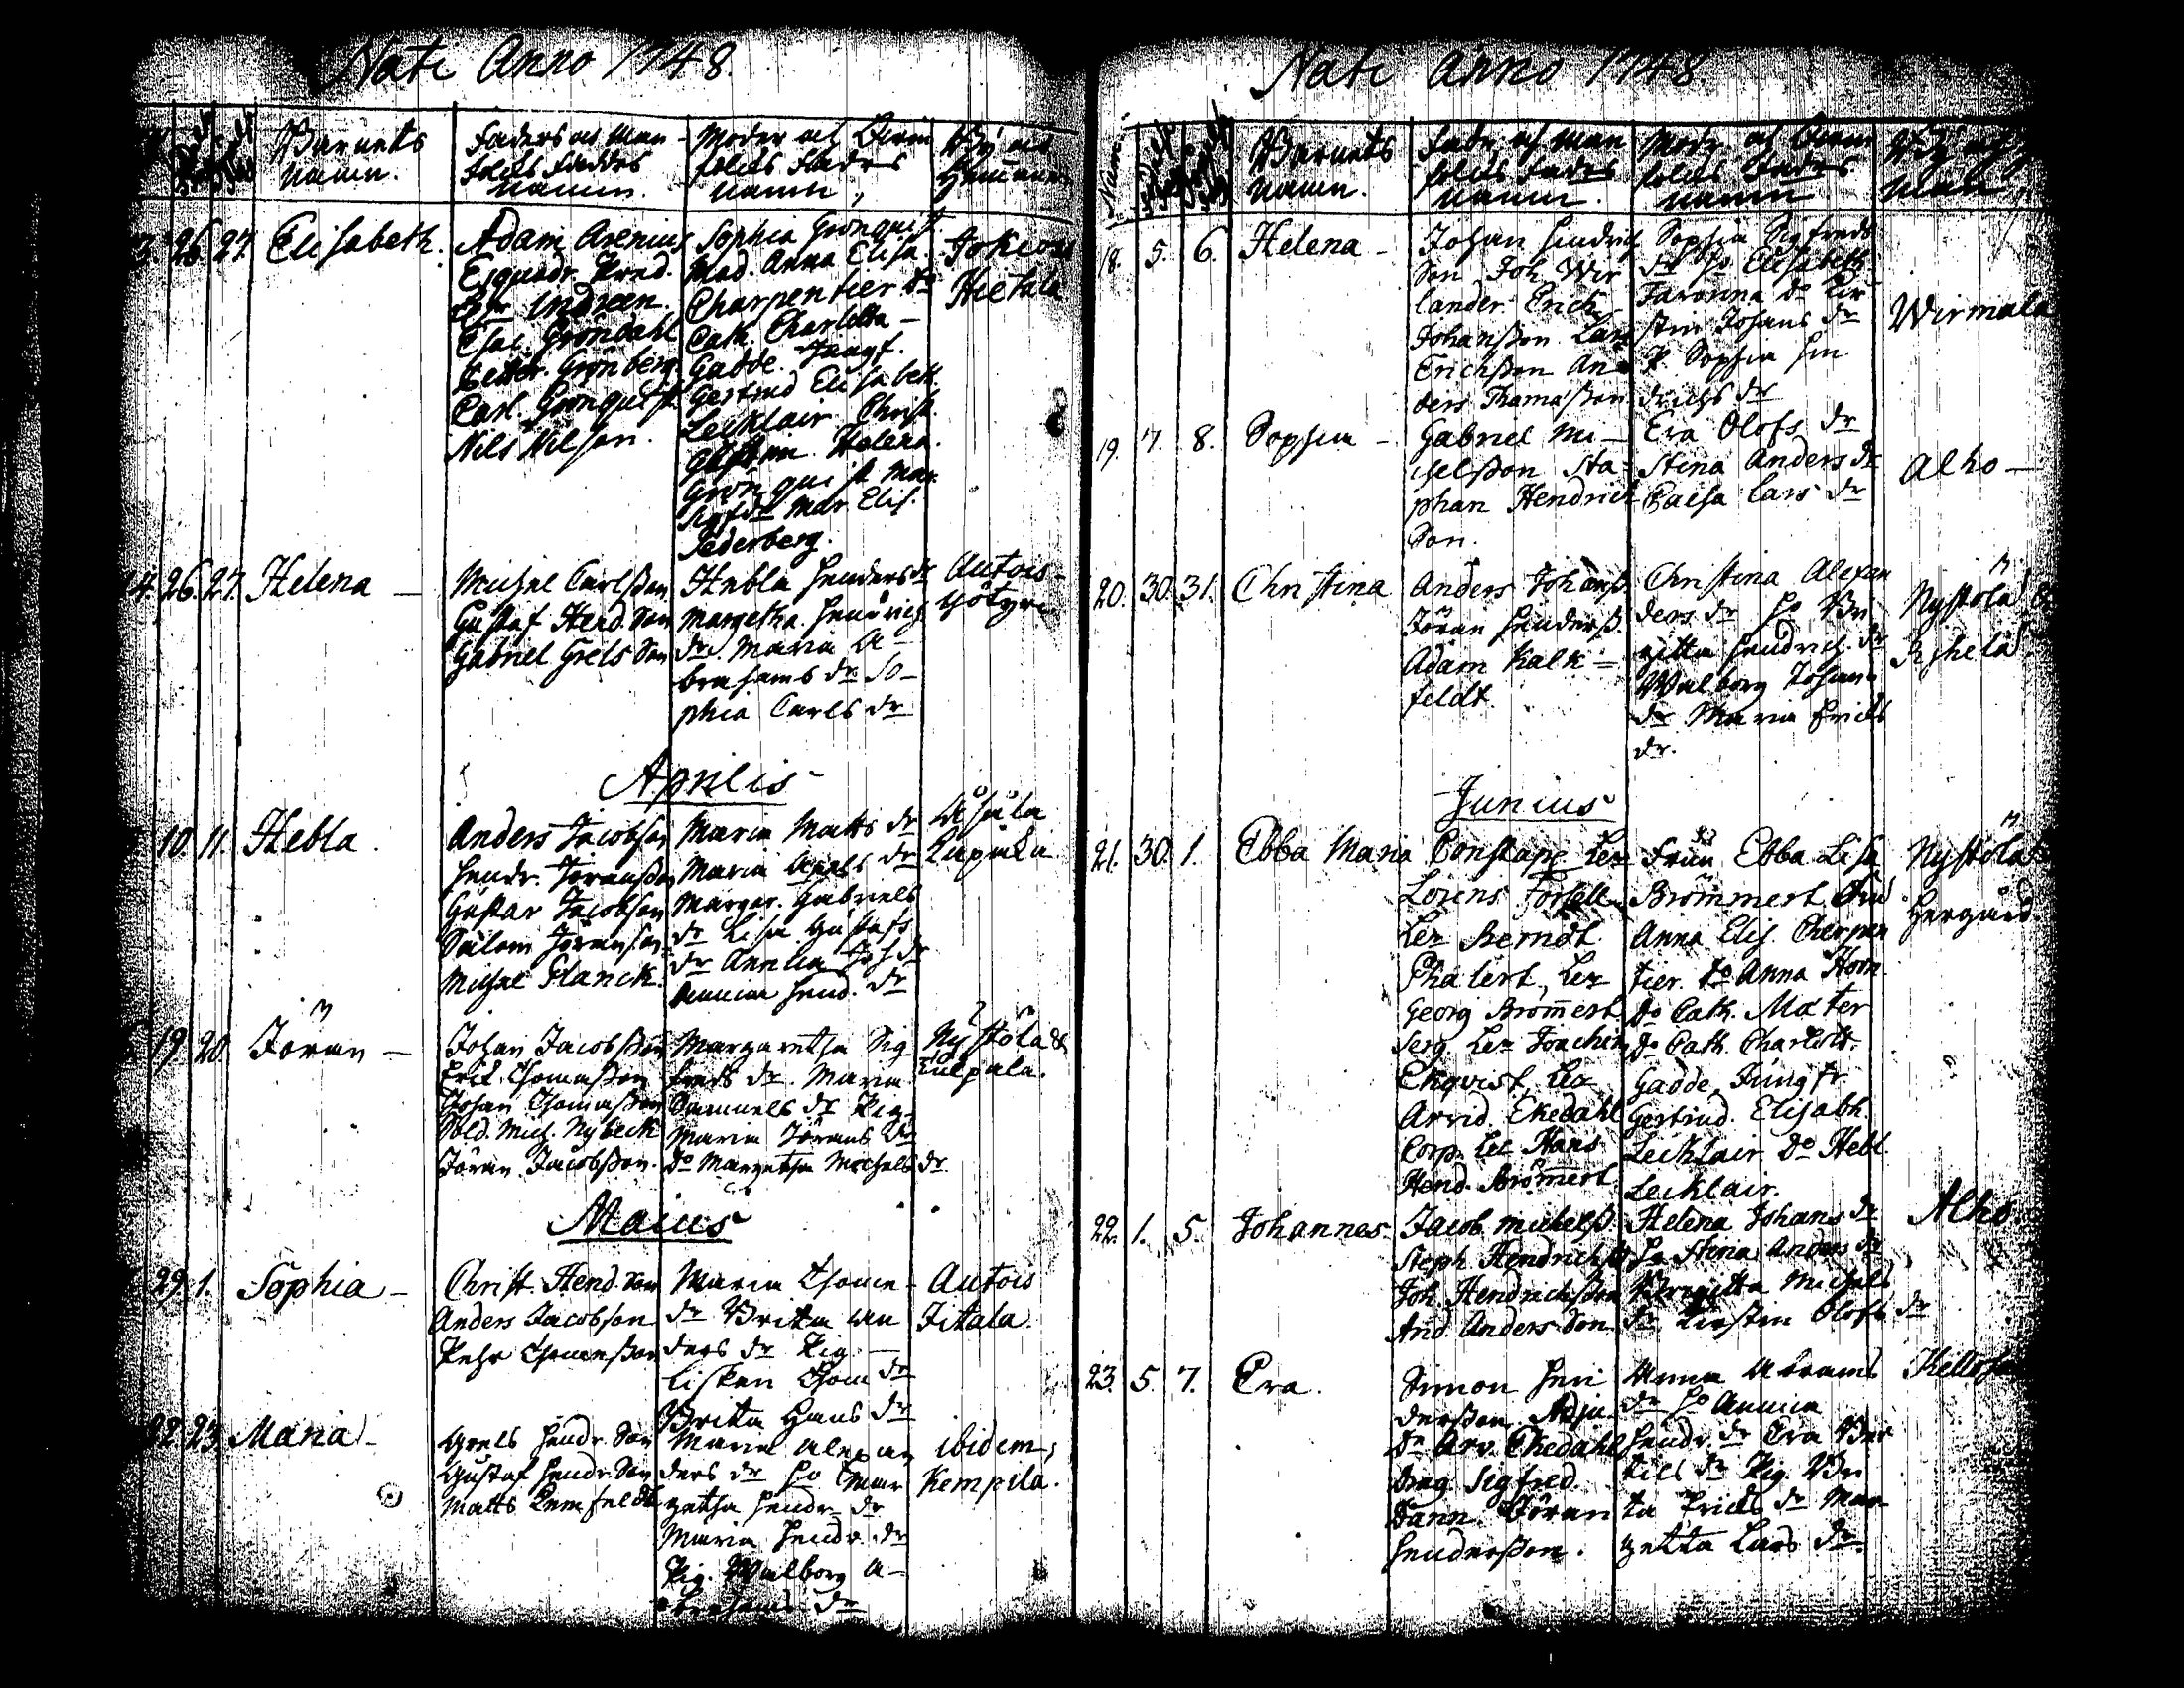 Nati Anno 1748.
Barnets
namn.
Faders och Man-
folks Faddrs
namn.
Moder och Qvin
folks Fadrs
namn,
By och
Hemman
26. 27. Elisabeth.
Adam Arenius
Esquadr. Pred.
Indreen.
Gröndahl
Grönberg.
Carl. Grönquist
Nils Nilson.
Sophia Grönquist.
Mad. Anna Elisa.
Charpentier Do
Cath. Charlotta -
Gadde. Jungf.
Gertrud Elisabeth
Lecklair Christ.
Helena.
Grönquist Mar.
Mar Elis.
Sederberg.
Jokiois
Hietala
26. 27. Helena -
Michel Carlsson
Gustaf Hend. Son
Gabriel Grels Son
Hebla Henders dr
Margetha. Hendrichs
dr. Maria A-
brahams dr So-
phia Carls dr
Autois-
Yötyri
Aprilis
10. 11. Hebla.
Anders Jacobson
Hendr. Jöransson
Gustav Jacobson
Salom Jöranson
Michel Planck.
Maria Matts dr
Maria Axels dr
Margar. Gabriels
dr Lisa Gustafs
dr Annlia Joh dr
Annica Hend. dr
19. 20. Jöran -
Johan Jacobsson
Erich. Thomasson
Johan Thomasson
Sold. Mich. Nybeck
Jöran Jacobsson.
Margaretha Sig
freds dr. Maria
Samuels dr Pig.
Maria Jörans dr
Do Margetha Michels dr
Nystöla &
Tulpala.
Maius
29. 1. Sophia -
Christ. Hend. Son
Anders Jacobson
Pehr Thomasson
Maria Thome-
dr Brita An
ders dr Pig -
Lisken Thom dr
Brita Hans dr
Autois
Titala.
22. 23. Maria -
Grels Hendr. Son
Gustaf Hendr. Son
Matts Lemfeldt
Maria Alexan
ders dr Ho Mar
getha Hendr dr
Maria Hendr. dr
Pig. Walborg A-
brahams dr
ibidem,
Kempila.
Nati Anno 1748.
Barnets
namn.
Fadr. och Man
folks Fadrs
namn.
Modr. och Qvin
folks Fadrs
namn
18. 5. 6. Helena -
Johan Hindrich
Son Joh. Wir
lander Erich
Johansson Lars
Erichsson An-
ders Thomasson
Sophia Sigfreds
dr Ho Elisabeth
Faronna do Kir
stin Johans dr
P. Sophia Hin
drichs dr
Wirmala
19. 7. 8. Sophia -
Gabriel Mi-
chelsson Sta-
phan Hendrich
Son.
Eva Olofs dr
Stina Anders dr
Caisa Lars dr
Alho -
20. 30. 31. Christina
Anders Johanss.
Jöran Henderss.
Adam Kalk=
feldt.
Christina Alexan
ders dr Ho Bri
gitta Hendrich. dr
Walborg Johans
dr Maria Erichs
dr.
Nystölä
Junius
21. 30. 1. Ebba Maria
Constape Lez
Lorens Forsell
Lez Berndt
Phalert, Lez
Georg Brommert.
Serg. Lez Joachim
Ekqvist, Lez
Arvid Ekedahl
Corp. Lez Hans
Hend. Brommert
Fruu Ebba Lisa
Brömmert, Fru
Anna Elis. Charpen
tier. Do Anna Horn
Do Cath. Mäter
Do Cath. Charlott.
Gadde, Jungfr
Gertrud. Elisabth.
Lecklair Do Hebl
Lecklair.
Nystölä
Hergård.
22. 1. 5. Johannes.
Jacob Michelss.
Steph. Hendrichss
Joh. Hendrichsson
And. Anders Son
Helena Johans dr
Ho Stina Anders dr
Birgitta Michels
dr Kirstin Olofs dr
Alho.
23. 5. 7. Eva.
Simon Hen
dersson. Adju
Dn Arv. Ekedahl
Drag Sigfred.
Dann. Jöran
Hendersson.
Anna Abrams
dr Ho Annica
Hendr. dr Eva Ber
tils dr Pig. Bri
ta Erichs dr Mar-
getta Lars dr.